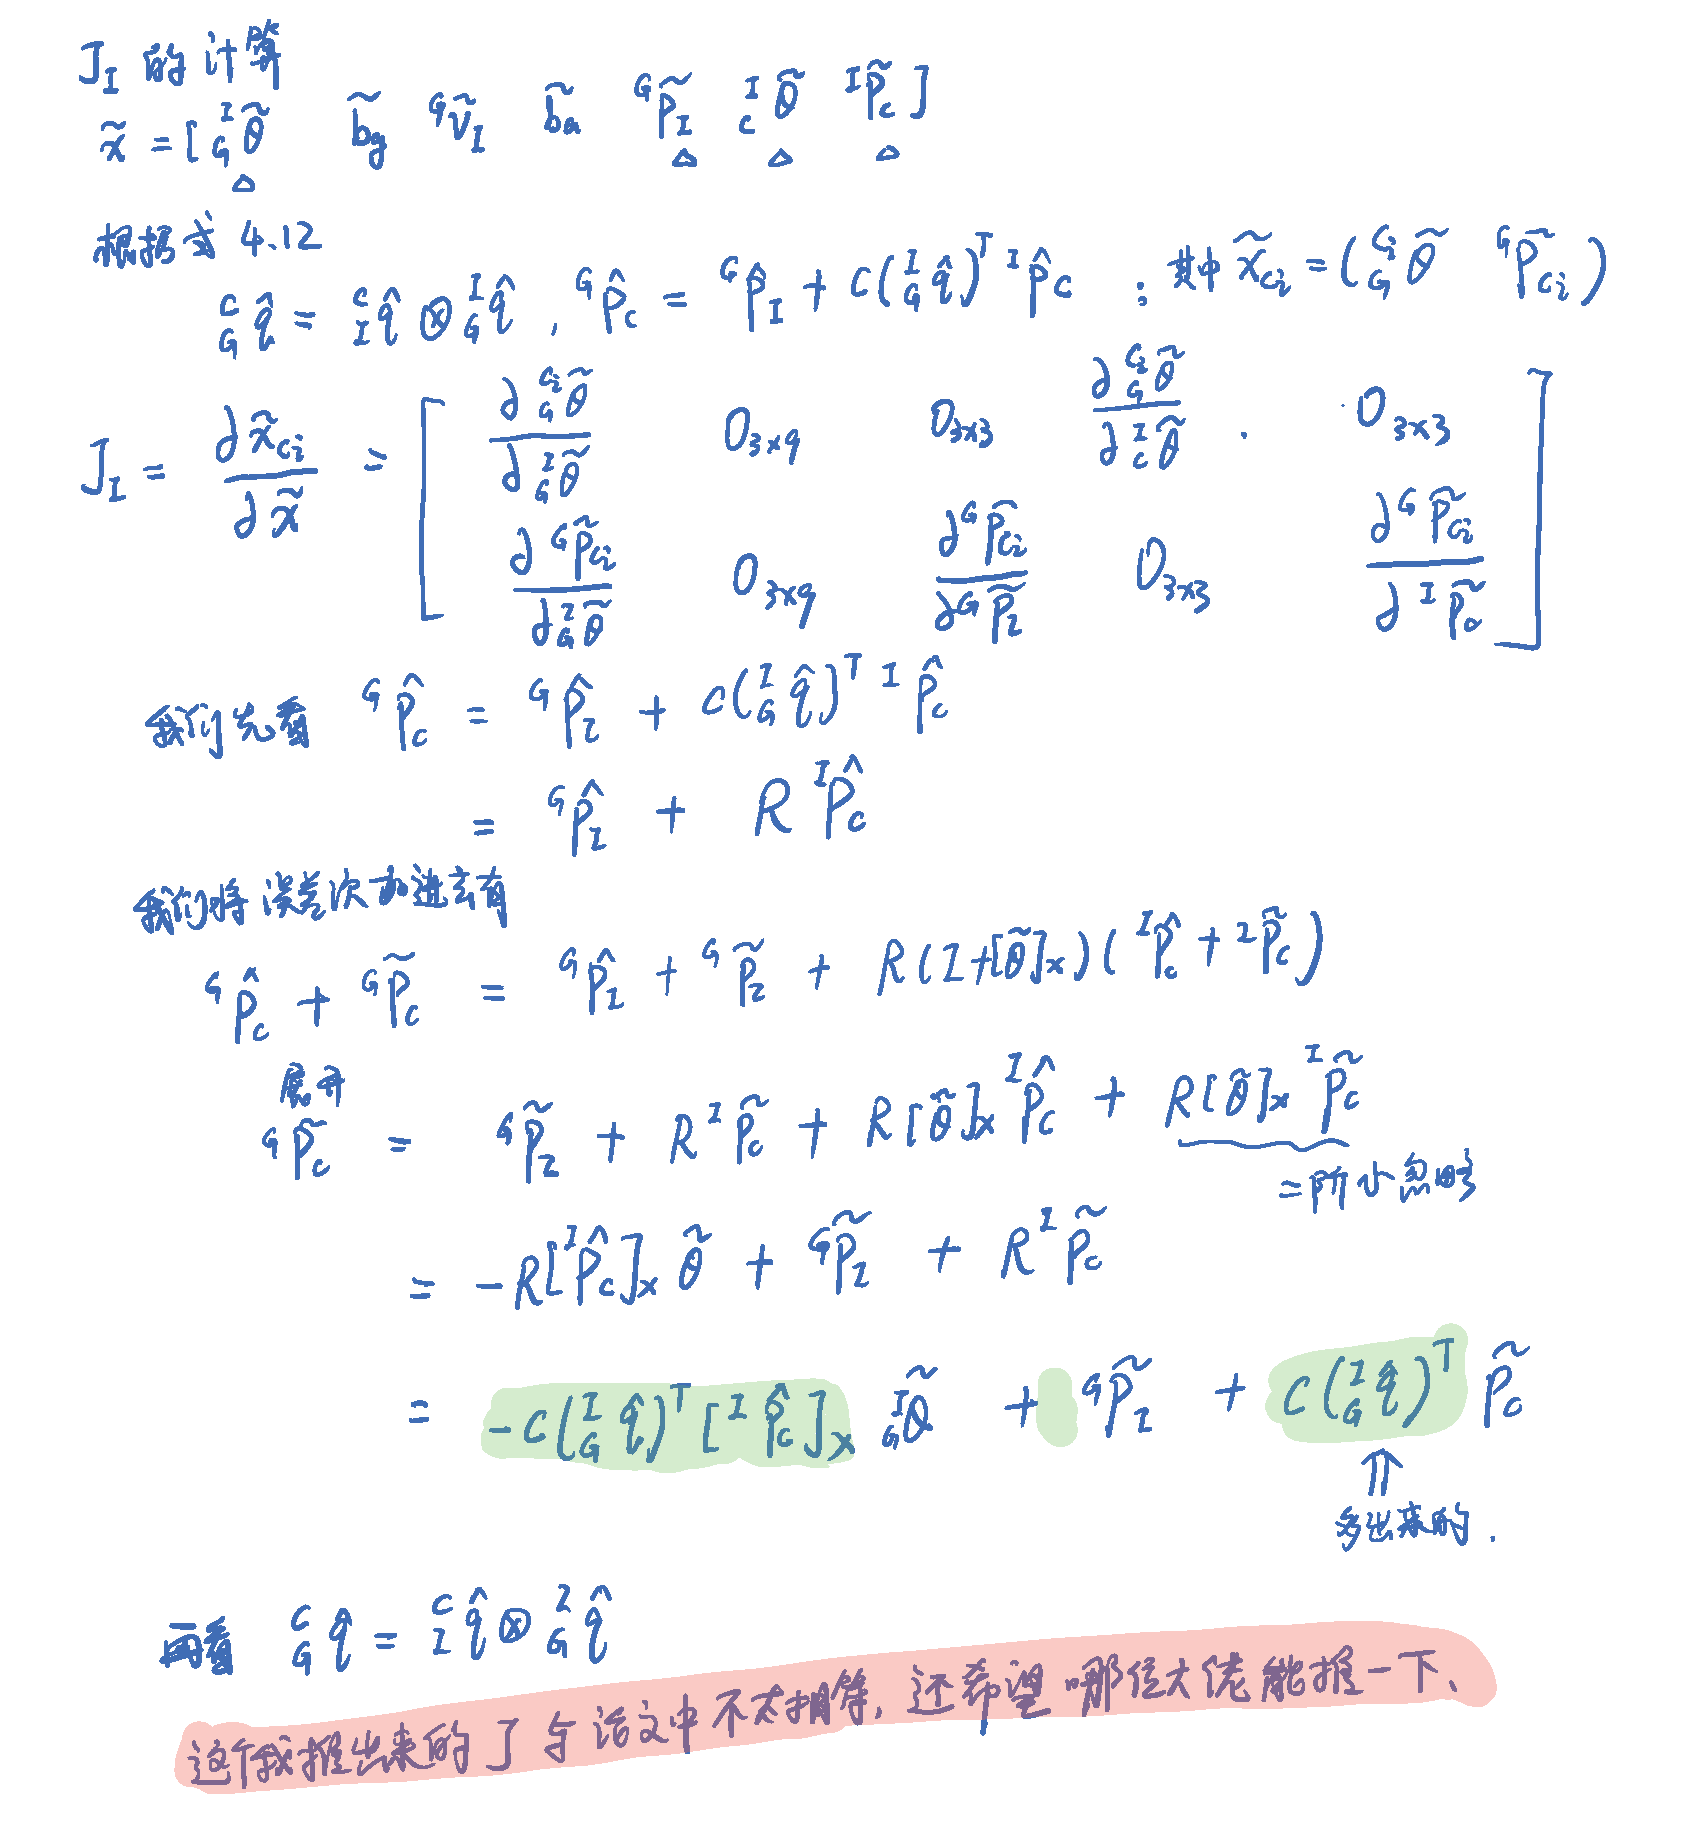 J_I 的计算
x̃ = [ ^I_G θ̃  b̃_g  ^G ṽ_I  b̃_a  ^G p̃_I  ^I_C θ̃  ^I p̃_C ]
根据式 4.12
^C_G q̂ = ^C_I q̂ ⊗ ^I_G q̂ , ^G p̂_C = ^G p̂_I + C(^I_G q̂)^T ^I p̂_C ; 其中 x̃_{C_i} = ( ^{C_i}_G θ̃  ^G p̃_{C_i} )
J_I = ∂x̃_{C_i} / ∂x̃ = [ ∂^{C_i}_G θ̃ / ∂^I_G θ̃  0_{3×9}  0_{3×3}  ∂^{C_i}_G θ̃ / ∂^I_C θ̃  0_{3×3}
∂^G p̃_{C_i} / ∂^I_G θ̃  0_{3×9}  ∂^G p̃_{C_i} / ∂^G p̃_I  0_{3×3}  ∂^G p̃_{C_i} / ∂^I p̃_C ]
我们先看 ^G p̂_C = ^G p̂_I + C(^I_G q̂)^T ^I p̂_C
= ^G p̂_I + R ^I p̂_C
我们将误差次加进去有
^G p̂_C + ^G p̃_C = ^G p̂_I + ^G p̃_I + R(I+[θ̃]_×)( ^I p̂_C + ^I p̃_C )
展开
^G p̃_C = ^G p̃_I + R ^I p̃_C + R[θ̃]_× ^I p̂_C + R[θ̃]_× ^I p̃_C
二阶小忽略
= -R[^I p̂_C]_× θ̃ + ^G p̃_I + R ^I p̃_C
= -C(^I_G q̂)^T [^I p̂_C]_× ^I_G θ̃ + ^G p̃_I + C(^I_G q̂)^T p̃_C
⇑
多出来的.
再看 ^C_G q̂ = ^C_I q̂ ⊗ ^I_G q̂
这个我推出来的 J 与论文中不太相等, 还希望哪位大佬能推一下、